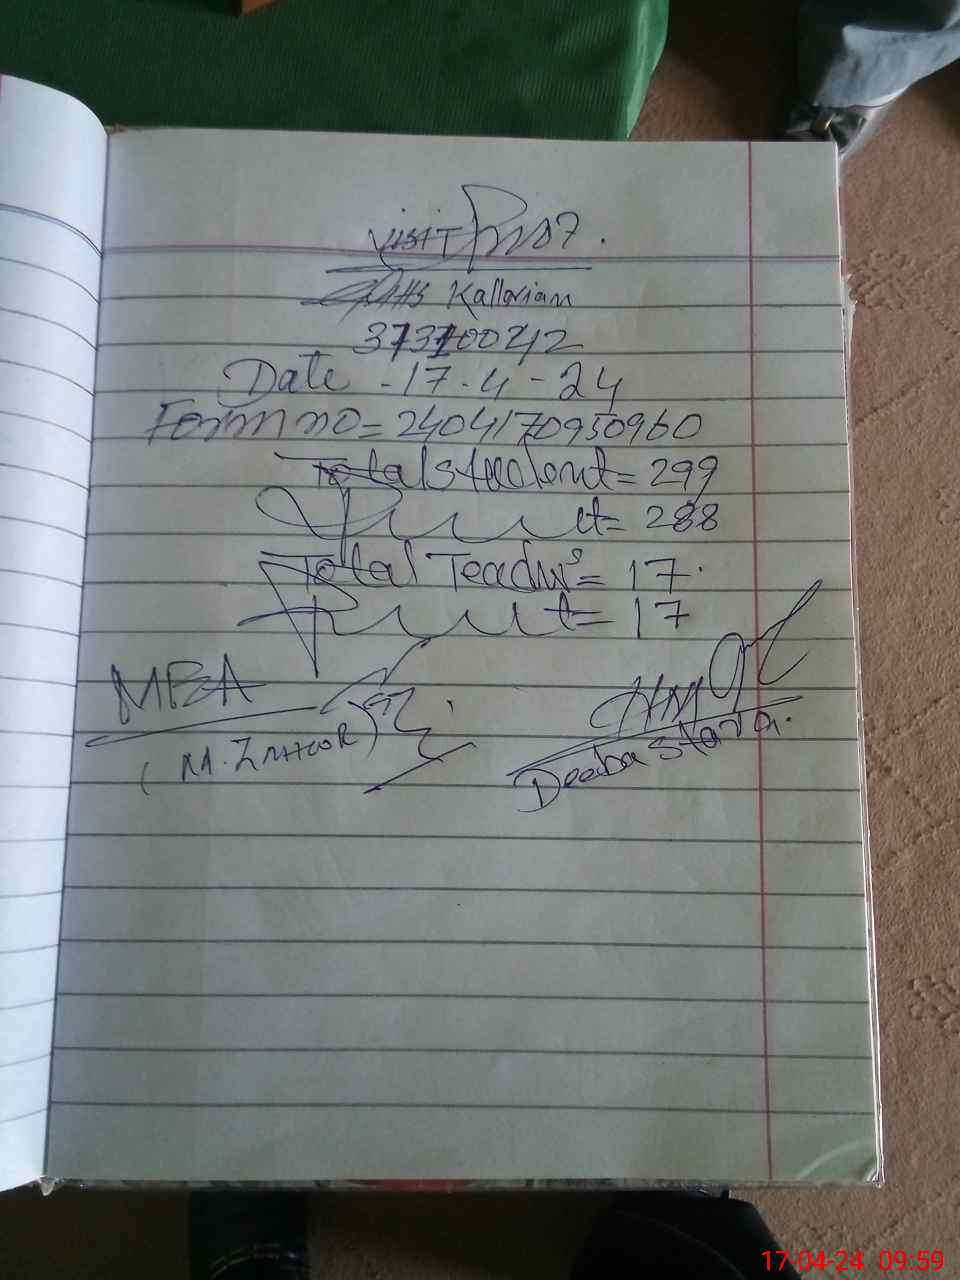 VISIT
Kallorian
37310042
Date - 17-4-24
Form no = 2404170950960
Total student = 299
Pruut = 288
Total Teach's = 17.
Pruut = 17
MEA HM
(M. ZAHOOR) Deeba
17-04-24 09:59